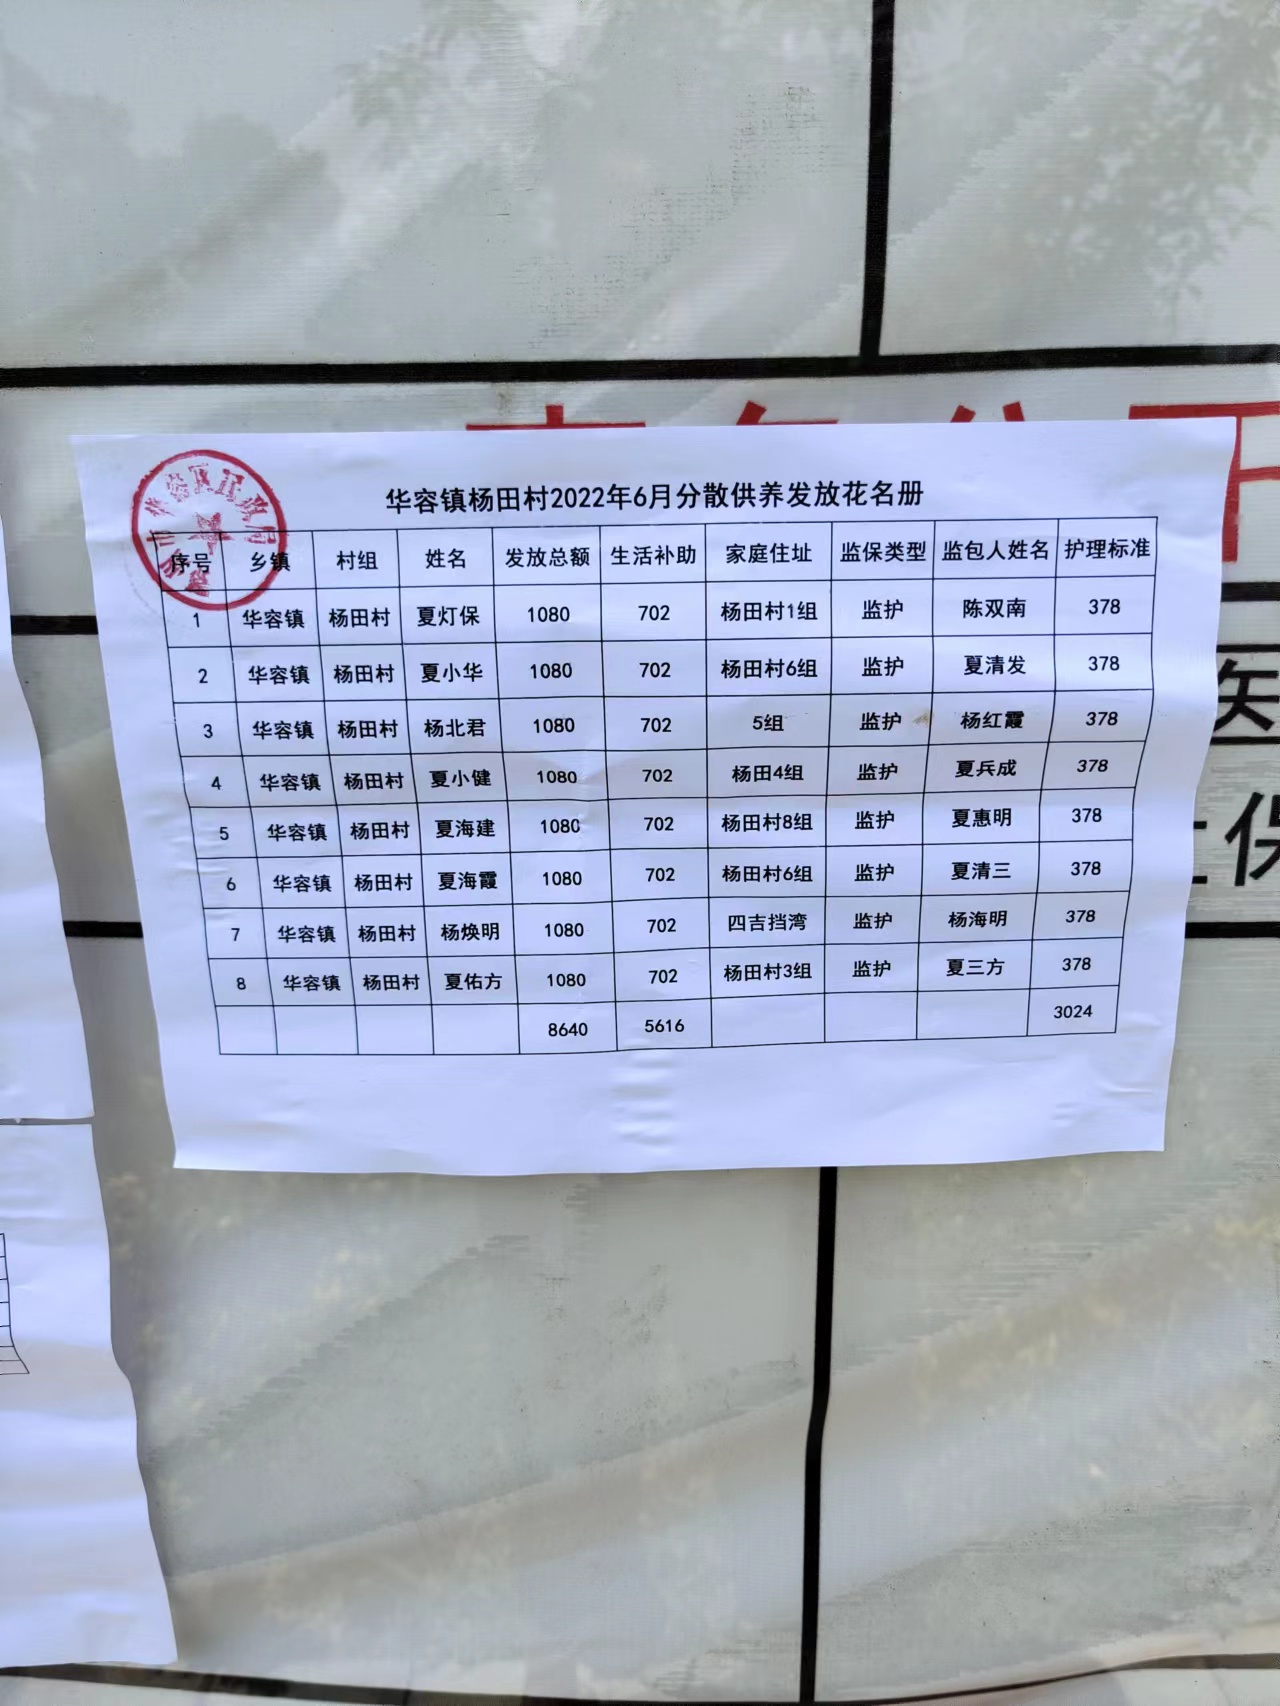 华容镇杨田村2022年6月分散供养发放花名册
序号 乡镇 村组 姓名 发放总额 生活补助 家庭住址 监保类型 监包人姓名 护理标准
1 华容镇 杨田村 夏灯保 1080 702 杨田村1组 监护 陈双南 378
2 华容镇 杨田村 夏小华 1080 702 杨田村6组 监护 夏清发 378
3 华容镇 杨田村 杨北君 1080 702 5组 监护 杨红霞 378
4 华容镇 杨田村 夏小健 1080 702 杨田4组 监护 夏兵成 378
5 华容镇 杨田村 夏海建 1080 702 杨田村8组 监护 夏惠明 378
6 华容镇 杨田村 夏海霞 1080 702 杨田村6组 监护 夏清三 378
7 华容镇 杨田村 杨焕明 1080 702 四吉挡湾 监护 杨海明 378
8 华容镇 杨田村 夏佑方 1080 702 杨田村3组 监护 夏三方 378
8640 5616 3024
医
保